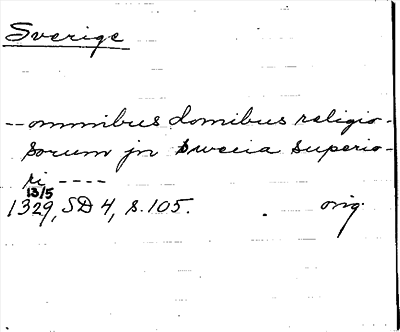 Sverige
-- omnibus domibus religio-
sorum jn swecia superio-
ri ----
13/5
1329, SD 4, s. 105. orig.